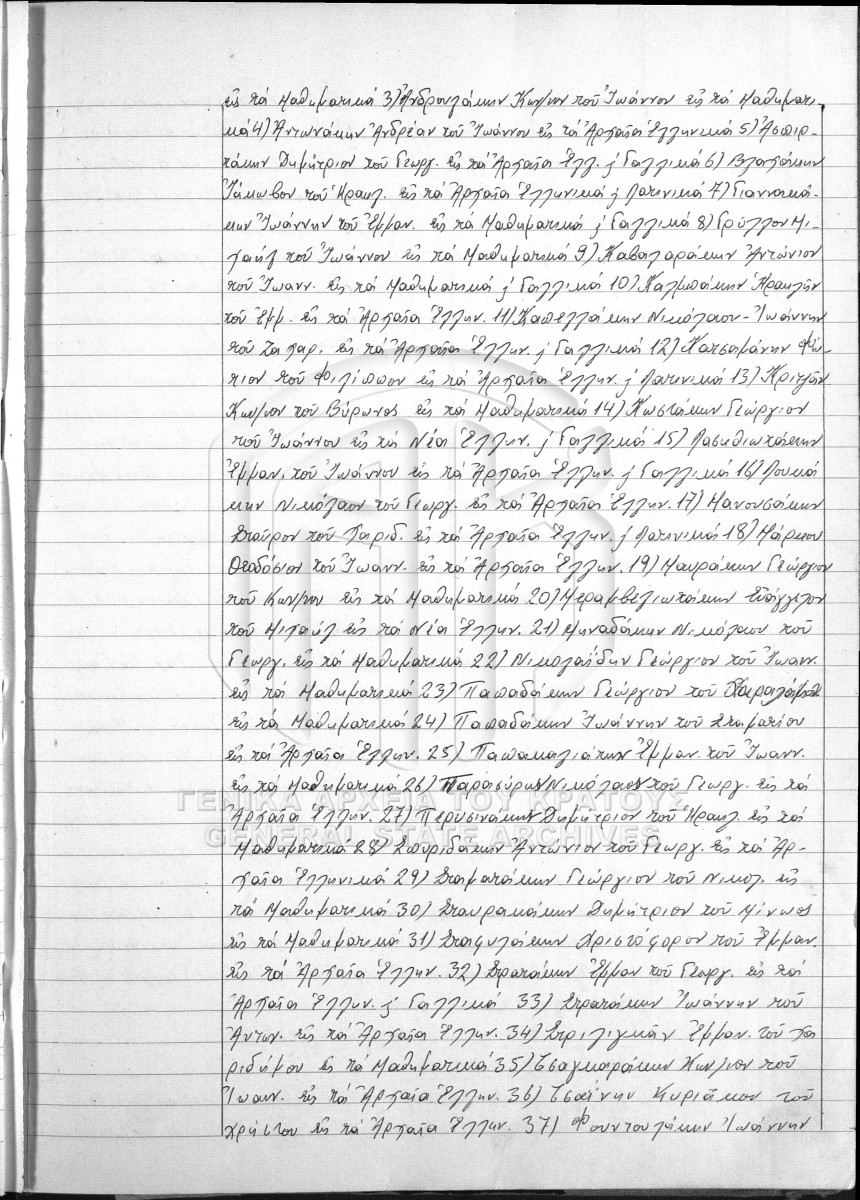 εἰς τά Μαθηματικά 3) Ἀνδρουλάκην Κων/νον τοῦ Ἰωάννου εἰς τά Μαθηματι-
κά 4) Ἀντωνάκην Ἀνδρέαν τοῦ Ἰωάννου εἰς τά Ἀρχαῖα Ἑλληνικά 5) Ἀσπιρ-
τάκην Δημήτριον τοῦ Γεωργ. εἰς τά Ἀρχαῖα Ἑλλ. ϗ Γαλλικά 6) Βλατάκην
Ἰάκωβον τοῦ Ἡρακλ. εἰς τά Ἀρχαῖα Ἑλληνικά ϗ Λατινικά 7) Γιαννακά-
κην Ἰωάννην τοῦ Ἐμμαν. εἰς τά Μαθηματικά ϗ Γαλλικά 8) Γρύλλον Μι-
χαήλ τοῦ Ἰωάννου εἰς τά Μαθηματικά 9) Καβαλαράκην Ἀντώνιον
τοῦ Ἰωανν. εἰς τά Μαθηματικά ϗ Γαλλικά 10) Καλμπάκην Ἡρακλῆν
τοῦ Ἐμμ. εἰς τά Ἀρχαῖα Ἑλλην. 11) Καπελλάκην Νικόλαον-Ἰωάννην
τοῦ Ζαχαρ. εἰς τά Ἀρχαῖα Ἑλλην. ϗ Γαλλικά 12) Κατσαμάνην Φώ-
τιον τοῦ Φιλίππου εἰς τά Ἀρχαῖα Ἑλλην. ϗ Λατινικά 13) Κριτζᾶν
Κων/νον τοῦ Βύρωνος εἰς τά Μαθηματικά 14) Κωστάκην Γεώργιον
τοῦ Ἰωάννου εἰς τά Νέα Ἑλλην. ϗ Γαλλικά 15) Λασηθιωτάκην
Ἐμμαν. τοῦ Ἰωάννου εἰς τά Ἀρχαῖα Ἑλλην. ϗ Γαλλικά 16) Λουκά
κην Νικόλαον τοῦ Γεωργ. εἰς τά Ἀρχαῖα Ἑλλην. 17) Μανουσάκην
Σταῦρον τοῦ Χαριδ. εἰς τά Ἀρχαῖα Ἑλλην. ϗ Λατινικά 18) Μάρκου
Θεοδόσιον τοῦ Ἰωανν. εἰς τά Ἀρχαῖα Ἑλλην. 19) Μαυράκην Γεώργιον
τοῦ Κων/νου εἰς τά Μαθηματικά 20) Μεραμβελιωτάκην Εὐάγγελον
τοῦ Μιχαήλ εἰς τά Νέα Ἑλλην. 21) Μηναδάκην Νικόλαον τοῦ
Γεωργ. εἰς τά Μαθηματικά 22) Νικολαΐδην Γεώργιον τοῦ Ἰωανν.
εἰς τά Μαθηματικά 23) Παπαδάκην Γεώργιον τοῦ Χαραλάμπ
εἰς τά Μαθηματικά 24) Παπαδάκην Ἰωάννην τοῦ Σταματίου
εἰς τά Ἀρχαῖα Ἑλλην. 25) Παπακαλιάτην Ἐμμαν. τοῦ Ἰωανν.
εἰς τά Μαθηματικά 26) Παρασύρην Νικόλαον τοῦ Γεωργ. εἰς τά
Ἀρχαῖα Ἑλλην. 27) Περυσινάκην Δημήτριον τοῦ Ἡρακλ. εἰς τά
Μαθηματικά 28) Σπυριδάκην Ἀντώνιον τοῦ Γεωργ. εἰς τά Ἀρ-
χαῖα Ἑλληνικά 29) Σταματάκην Γεώργιον τοῦ Νικολ. εἰς
τά Μαθηματικά 30) Σταυρακάκην Δημήτριον τοῦ Μίνωος
εἰς τά Μαθηματικά 31) Σταφυλάκην Χριστόφορον τοῦ Ἐμμαν.
εἰς τά Ἀρχαῖα Ἑλλην. 32) Στρατάκην Ἐμμαν τοῦ Γεωργ. εἰς τά
Ἀρχαῖα Ἑλλην. ϗ Γαλλικά 33) Στρατάκην Ἰωάννην τοῦ
Ἀντων. εἰς τά Ἀρχαῖα Ἑλλην. 34) Στριλιγκᾶν Ἐμμαν. τοῦ Χα
ριδήμου εἰς τά Μαθηματικά 35) Τσαγκαράκην Κων/νον τοῦ
Ἰωανν. εἰς τά Ἀρχαῖα Ἑλλην. 36) Τσαΐνην Κυριάκον τοῦ
Χρήστου εἰς τά Ἀρχαῖα Ἑλλην. 37) Φουντουλάκην Ἰωάννην
ΓΕΝΙΚΑ ΑΡΧΕΙΑ ΤΟΥ ΚΡΑΤΟΥΣ
GENERAL STATE ARCHIVES